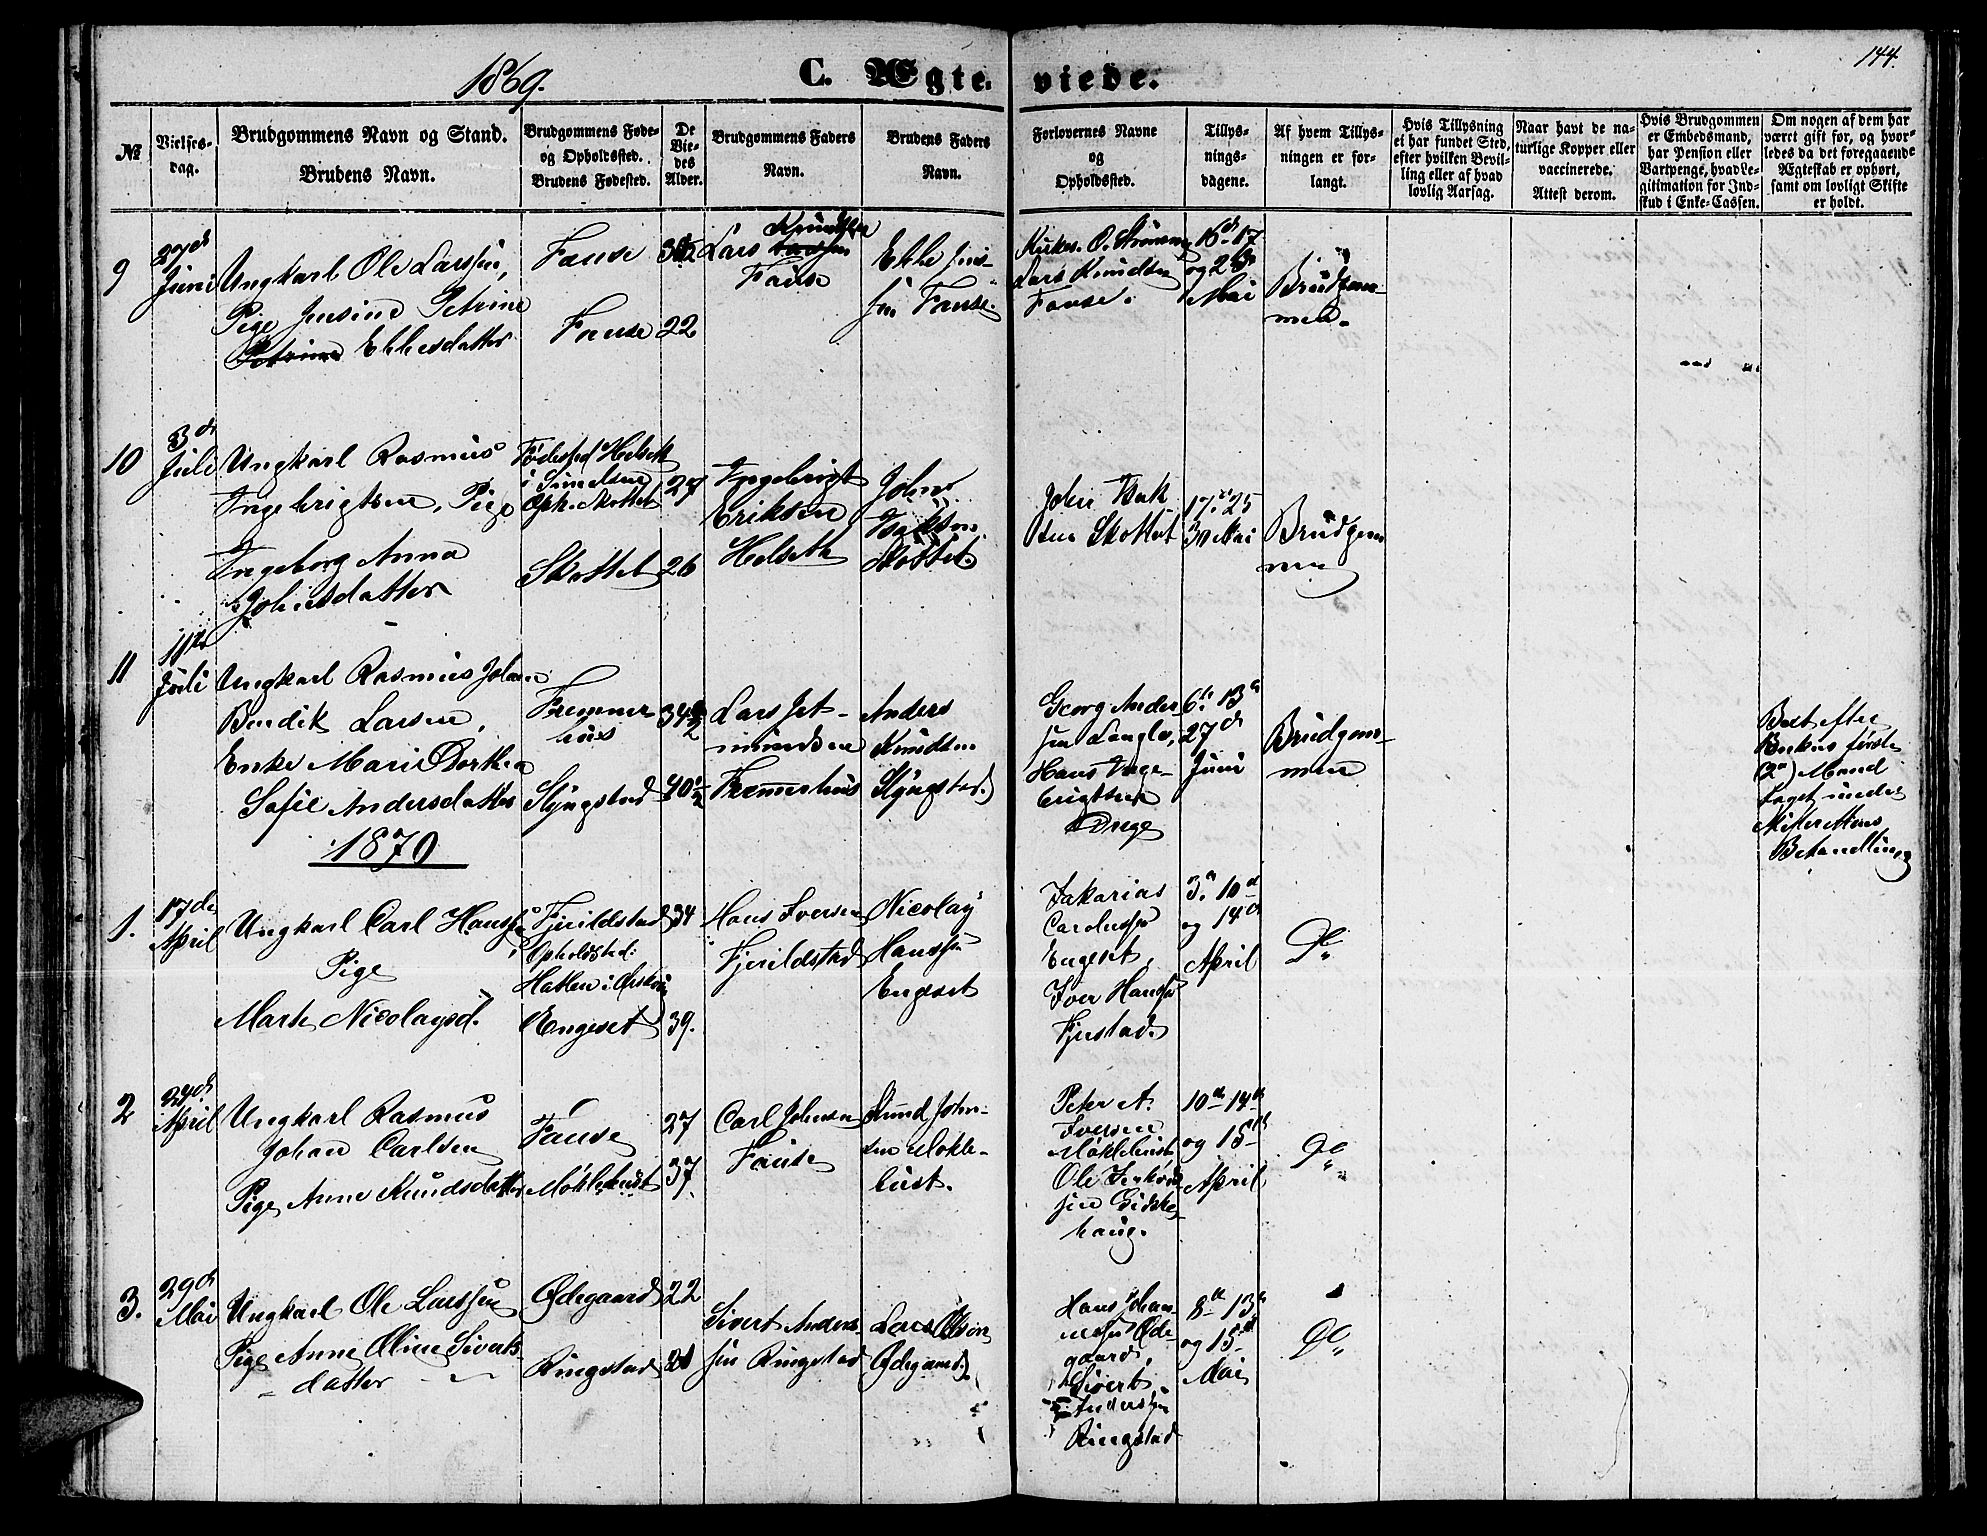 1869.
C. Ægte-
viede.
144.
№
Vielses-
dag.
Brudgommens Navn og Stand.
Brudens Navn.
Brudgommens Føde-
og Opholdssted.
Brudens Fødested.
De
Vie-
des
Alder.
Brudgommens Faders
Navn.
Brudens Faders
Navn.
Forlovernes Navne
og
Opholdssted.
Tillys-
nings-
dagene.
Af hvem Tillys-
ningen er for-
langt.
Hvis Tillysning
ei har fundet Sted,
efter hvilken Bevil-
ling eller af hvad
lovlig Aarsag.
Naar havt de na-
turlige Kopper eller
vaccinerede.
Attest derom.
Hvis Brudgommen
er Embedsmand,
har Pension eller
Vartpenge, hvad Le-
gitimation for Ind-
skud i Enke-Cassen.
Om nogen af dem har
været gift før, og hvor-
ledes da det foregaaende
Ægteskab er ophørt,
samt om lovligt Skifte
er holdt.
9
27de
Juni
Ungkarl Ole Larssen,
Pige Jensine Petrine
Petrine Ebbesdatter
Fause
Fause
22
Lars Knudsen
Fause
Ebbe Jens-
sen Fause.
Kirkes. O. Strømme
Lars Knudsen
Fause.
16de 17
og 23
Mai
Brudgom-
men.
10
3de
Juli
Ungkarl Rasmus
Ingebrigtsen, Pige
Ingeborg Anna
Johnsdatter
Fødested Helseth
Oph. Skottet
Skottet
27
26
Ingebrigt
Eriksen
Helseth
John
Isaksen
Skottet.
John Isak
sen Skottet
17de 25
30 Mai
Brudgom
men
11
11te
Juli
Ungkarl Rasmus Johan
Bendik Larsen,
Enke Marie Dorthea
Sofie Andersdatter
Fremmer-
huus
Slyngstad
34½
40½
Lars Jet-
mundsen
Fremmerhuus
Anders
Knudsen
Slyngstad.
Georg Ander
sen Langlo,
Hans Inge-
brigtsen
Drege
6te 13de
27de
Juni
Brudgom-
men
Best efter
Enkens første
(2den) Mand
Taget under
Skifterettens
Behandling
1870
1.
17de
April
Ungkarl Carl Hanssen
Pige
Marte Nicolaysd.
Fjeildstad
Opholdsted:
Hatlen i Ørskou
Engeset
34
39.
Hans Iversen
Fjeildstad
Nicolay
Hanssen
Engeset
Zakarias
Carolussen
Engeset,
Iver Hanssen
Fjestad.
3de 10de
og 14de
April
Do
2
24de
April
Ungkarl Rasmus
Johan Carlsen
Pige Anne Knudsdatter
Fause
Møklebust
27
37.
Carl Johnsen
Fause
Knud John-
sen Møkle-
bust.
Peter A.
Iversen
Møklebust
Ole
sen Gidske-
haug.
10de 14de
og 15de
April
Do
3.
29de
Mai
Ungkarl Ole Larssen
Pige Anne Oline Siverts-
datter
Ødegaard
Ringstad
22
21
Sivert Anders-
sen Ringstad
Lars Olsen
Ødegaard.
Hans Johan-
nessen Øde-
gaard,
Sivert
Anderssen
Ringstad
8de 13de
og 15de
Mai
Do